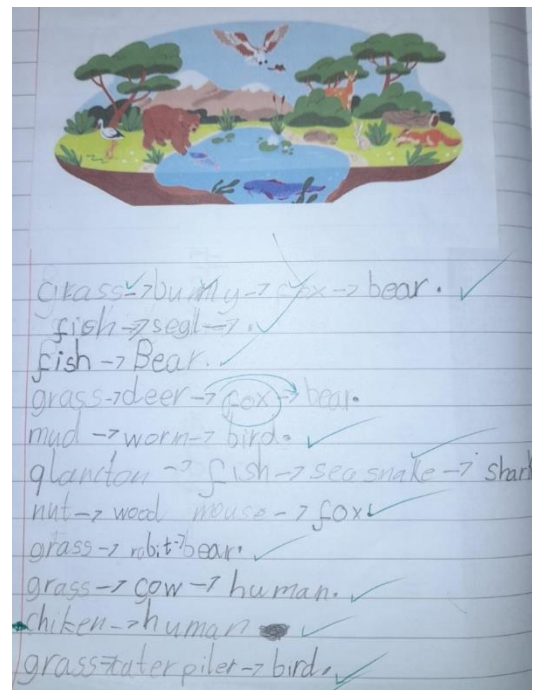 grass->bunny->fox->bear.
fish->segl->.
fish->Bear.
grass->deer->fox->bear.
mud->worm->bird.
glancton->fish->sea snake->shark
nut->wood mouse->fox
grass->rabit->bear.
grass->cow->human.
chiken->human
grass->caterpiler->bird.